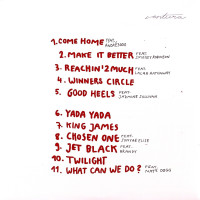 ventura
1. COME HOME FEAT. ANDRÉ 3000
2. MAKE IT BETTER FEAT. SMOKEY ROBINSON
3. REACHIN' 2 MUCH FEAT. LALAH HATHAWAY
4. WINNERS CIRCLE
5. GOOD HEELS FEAT. JAZMINE SULLIVAN
6. YADA YADA
7. KING JAMES
8. CHOSEN ONE FEAT. SONYAE ELISE
9. JET BLACK FEAT. BRANDY
10. TWILIGHT
11. WHAT CAN WE DO? FEAT. NATE DOGG